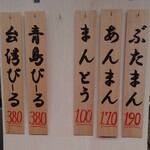 ぶたまん
190
あんまん
170
まんとう
100
青島びーる
380
台湾びーる
380